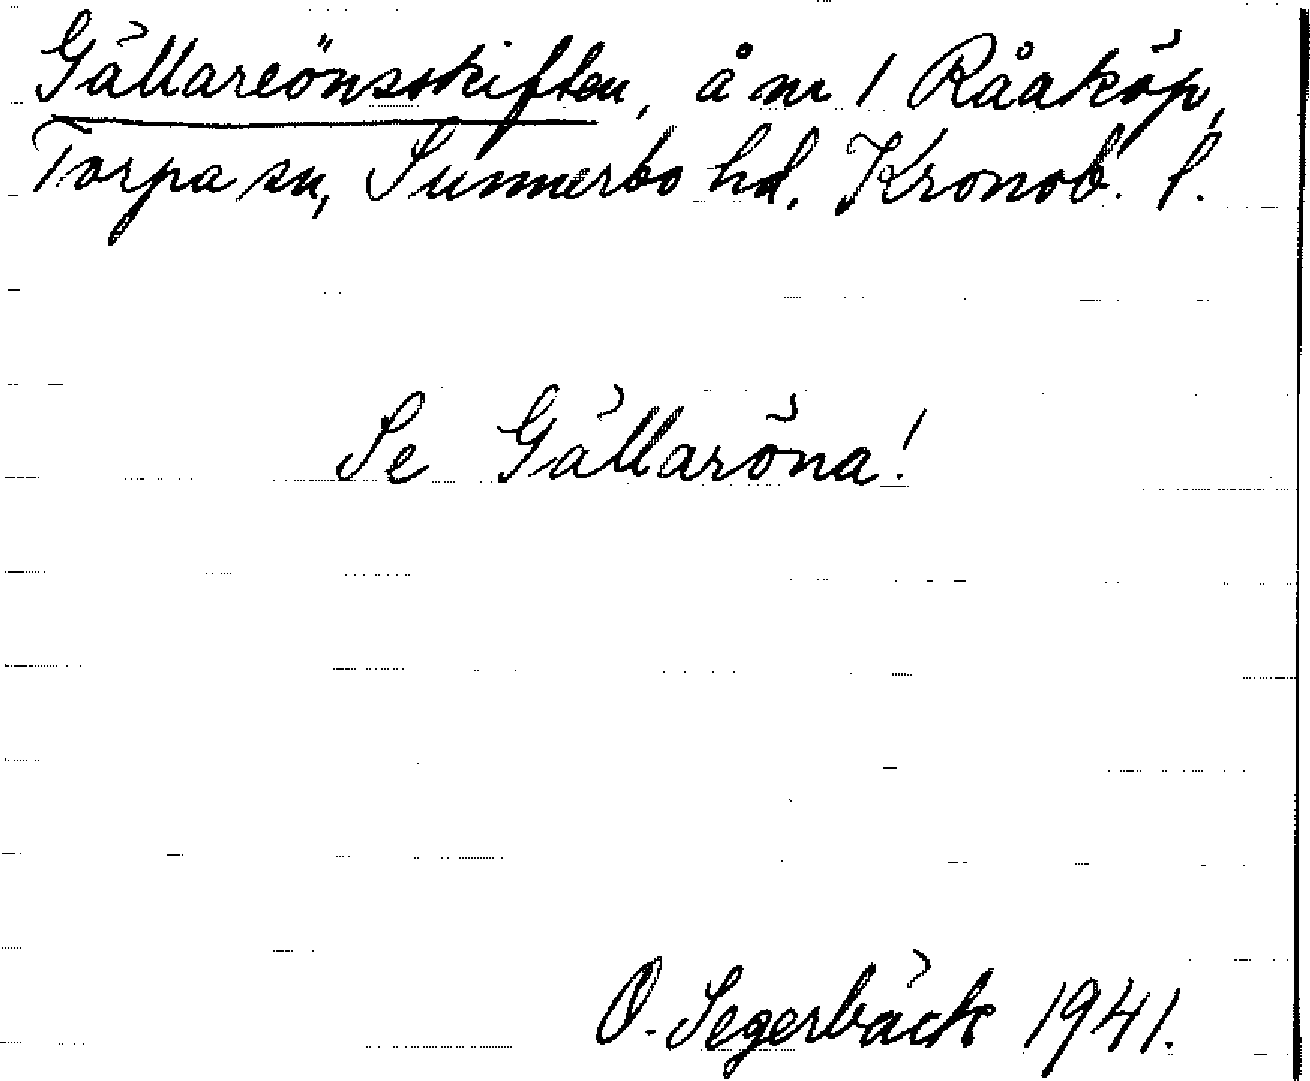 Gällareönsskiften, å nr 1 Råaköp,
Torpa sn, Sunnerbo hd. Kronob. l.
Se Gällaröna!
O. Segerbäck 1941.